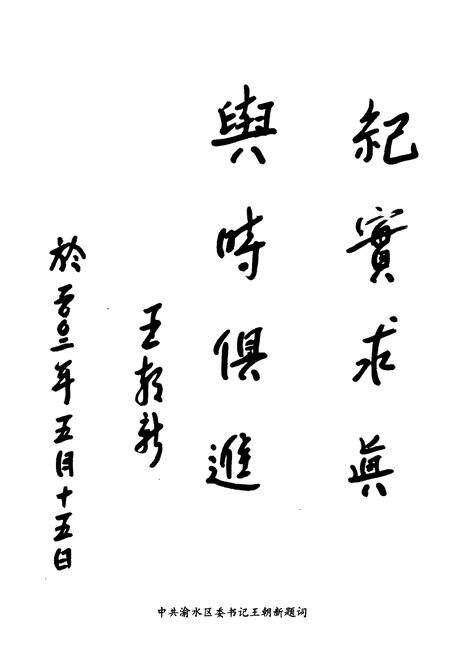 紀實求真
與時俱進
王朝新
於二〇〇二年五月十五日
中共渝水区委书记王朝新题词